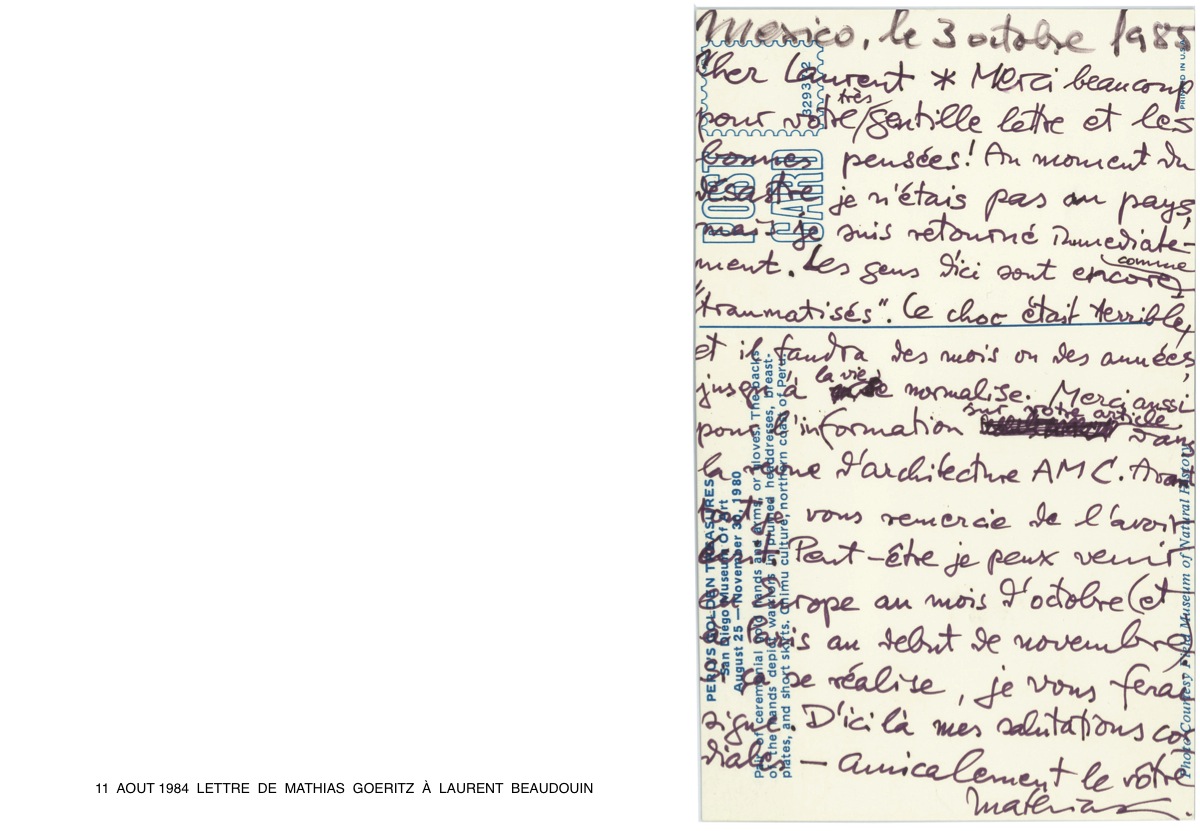 11 AOUT 1984 LETTRE DE MATHIAS GOERITZ À LAURENT BEAUDOUIN
Mexico, le 3 octobre 1985
Cher Laurent * Merci beaucoup
pour votre/très gentille lettre et les
bonnes pensées! Au moment du
désastre je n'étais pas au pays,
mais je suis retourné immediate-
ment. Les gens d'ici sont encore comme
"traumatisés". Ce choc était terrible,
et il faudra des mois ou des années
jusqu'à la vie se normalise. Merci aussi
pour l'information sur votre article dans
la revue d'architecture AMC. Avant
tout je vous remercie de l'avoir
écrit! Peut-être je peux venir
en Europe au mois d'octobre (et
à Paris au debut de novembre)
si ça se réalise, je vous ferai
signe. D'ici là mes salutations cor
diales — amicalement le vôtre
Mathias.
POST CARD
329392
PRINTED IN U.S.A.
PERU'S GOLDEN TREASURES
San Diego Museum Of Art
August 25 — November 30, 1980
Pair of ceremonial gold hands and arms, or gloves. The backs
of the hands depict warriors in plumed headdresses, breast-
plates, and short skirts. Chimu culture, northern coast of Peru.
Photo Courtesy Field Museum of Natural History